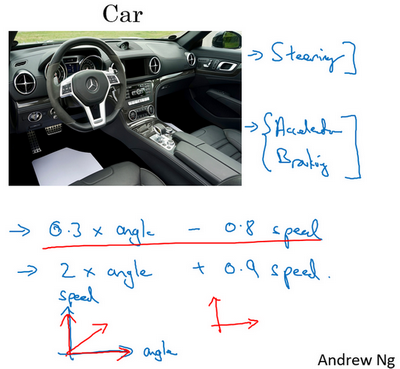 Car
→ Steering ]
→ { Acceleration
Braking ]
→ 0.3 × angle - 0.8 speed
→ 2 × angle + 0.9 speed.
speed
angle
Andrew Ng